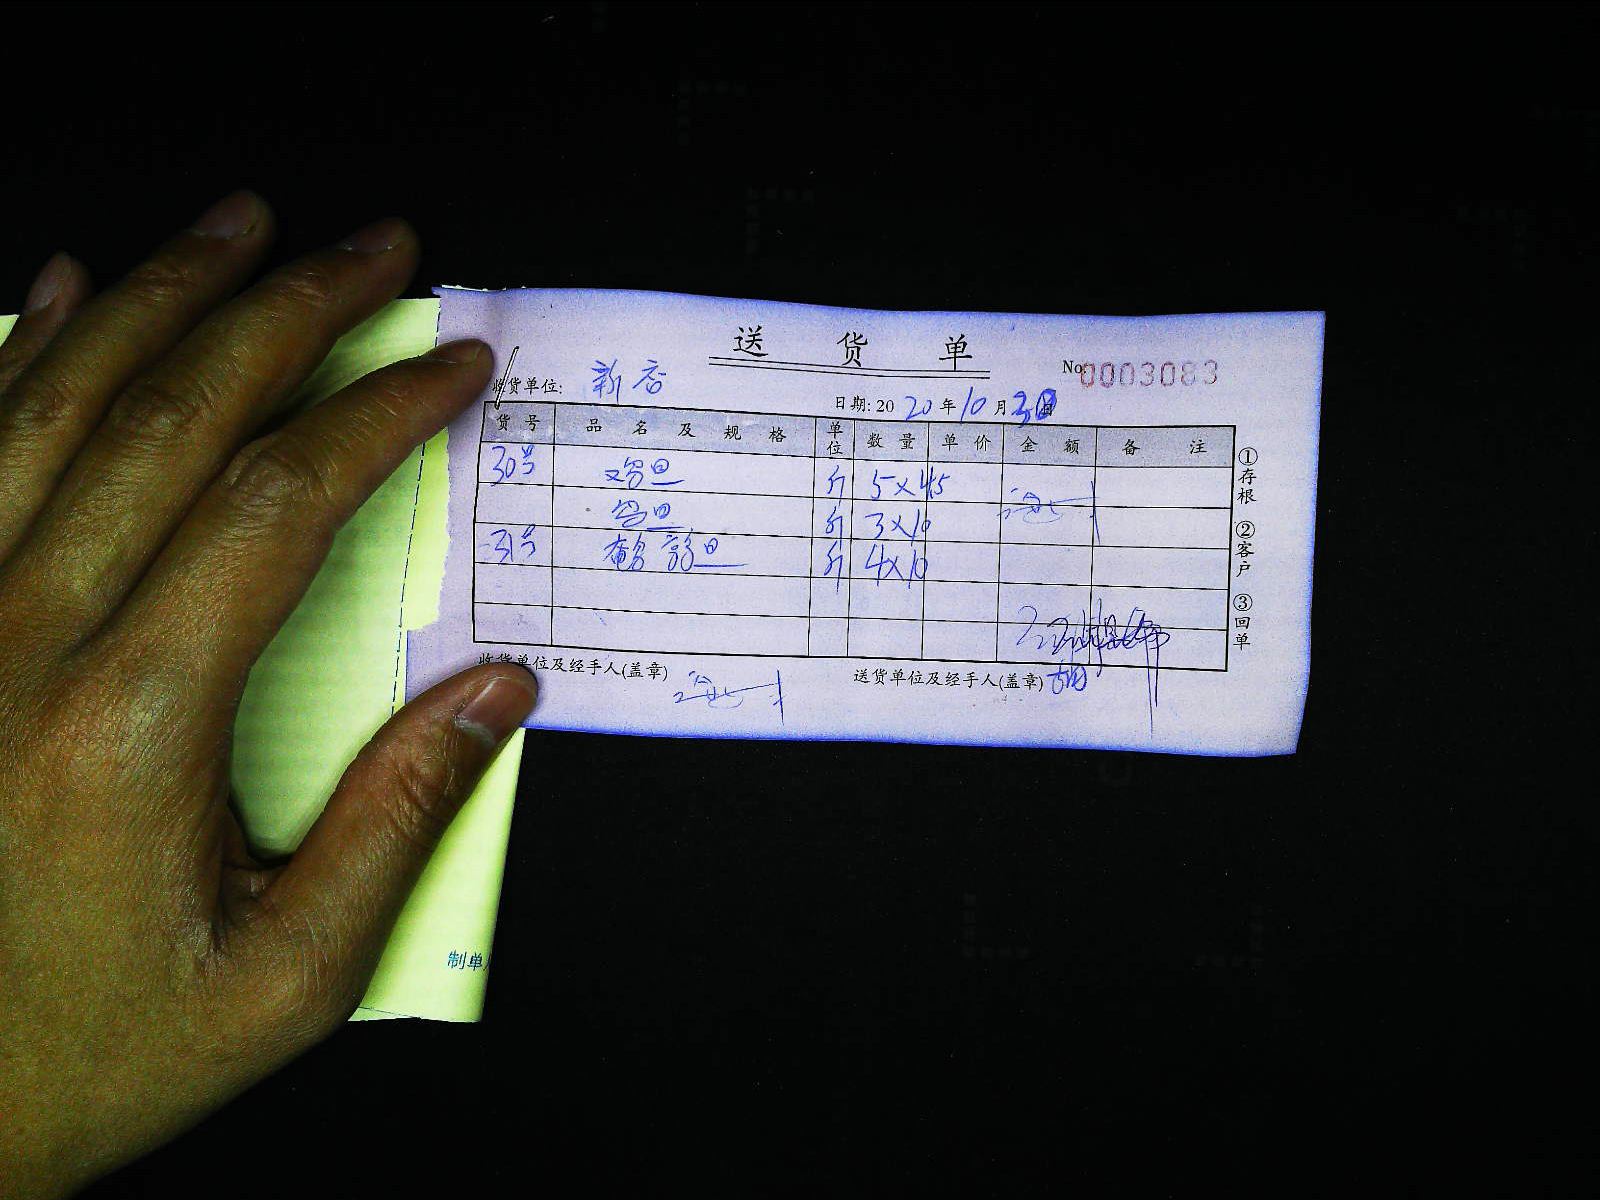 送 货 单
No: 0003083
收货单位: 新店
日期: 20 20 年 10 月 30 日
货 号 品 名 及 规 格 单位 数 量 单 价 金 额 备 注
30号 鸡旦 斤 5×45
旦 斤 3×10
31号 鹌鹑旦 斤 4×10
①存根 ②客户 ③回单
收货单位及经手人(盖章)
送货单位及经手人(盖章)
制单